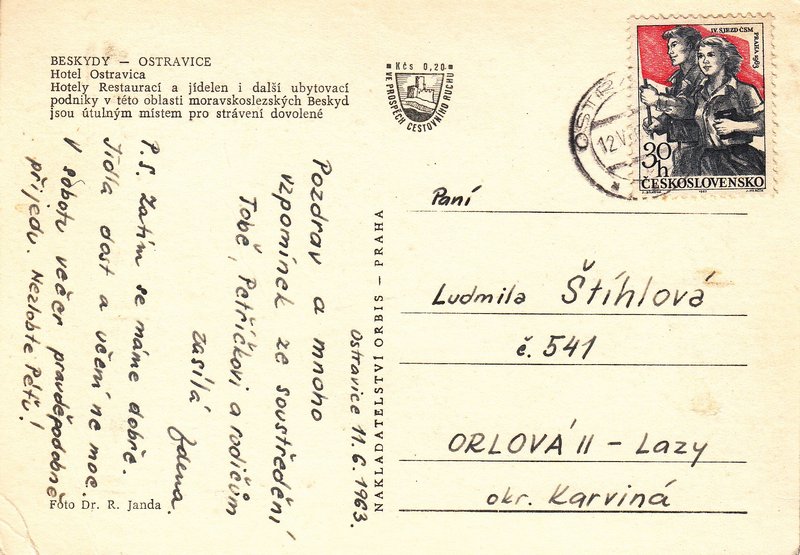 BESKYDY — OSTRAVICE
Hotel Ostravica
Hotely Restaurací a jídelen i další ubytovací
podniky v této oblasti moravskoslezských Beskyd
jsou útulným místem pro strávení dovolené
Kčs 0,20
VE PROSPĚCH CESTOVNÍHO RUCHU
IV. SJEZD ČSM
PRAHA 1963
30 h
ČESKOSLOVENSKO
12.V
Ostravice 11. 6. 1963.
Pozdrav a mnoho
vzpomínek ze soustředění
Tobě, Petříčkovi a rodičům
zasílá Zdena.
P.S. Zatím se máme dobře.
Jídla dost a učení ne moc.
V sobotu večer pravděpodobně
přijedu. Nezlobte Péťu!
NAKLADATELSTVÍ ORBIS — PRAHA
Paní
Ludmila Štíhlová
č. 541
ORLOVÁ II – Lazy
okr. Karviná
Foto Dr. R. Janda